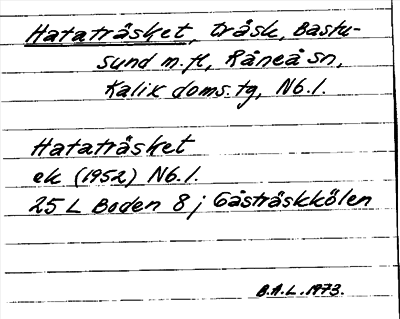 Hataträsket, träsk, Bastu-
sund m.fl., Råneå sn,
Kalix doms. tg, Nb.l.
Hataträsket
ek (1952) Nb.l.
25 L Boden 8 j Gåsträskkölen
B.A.L. 1973.